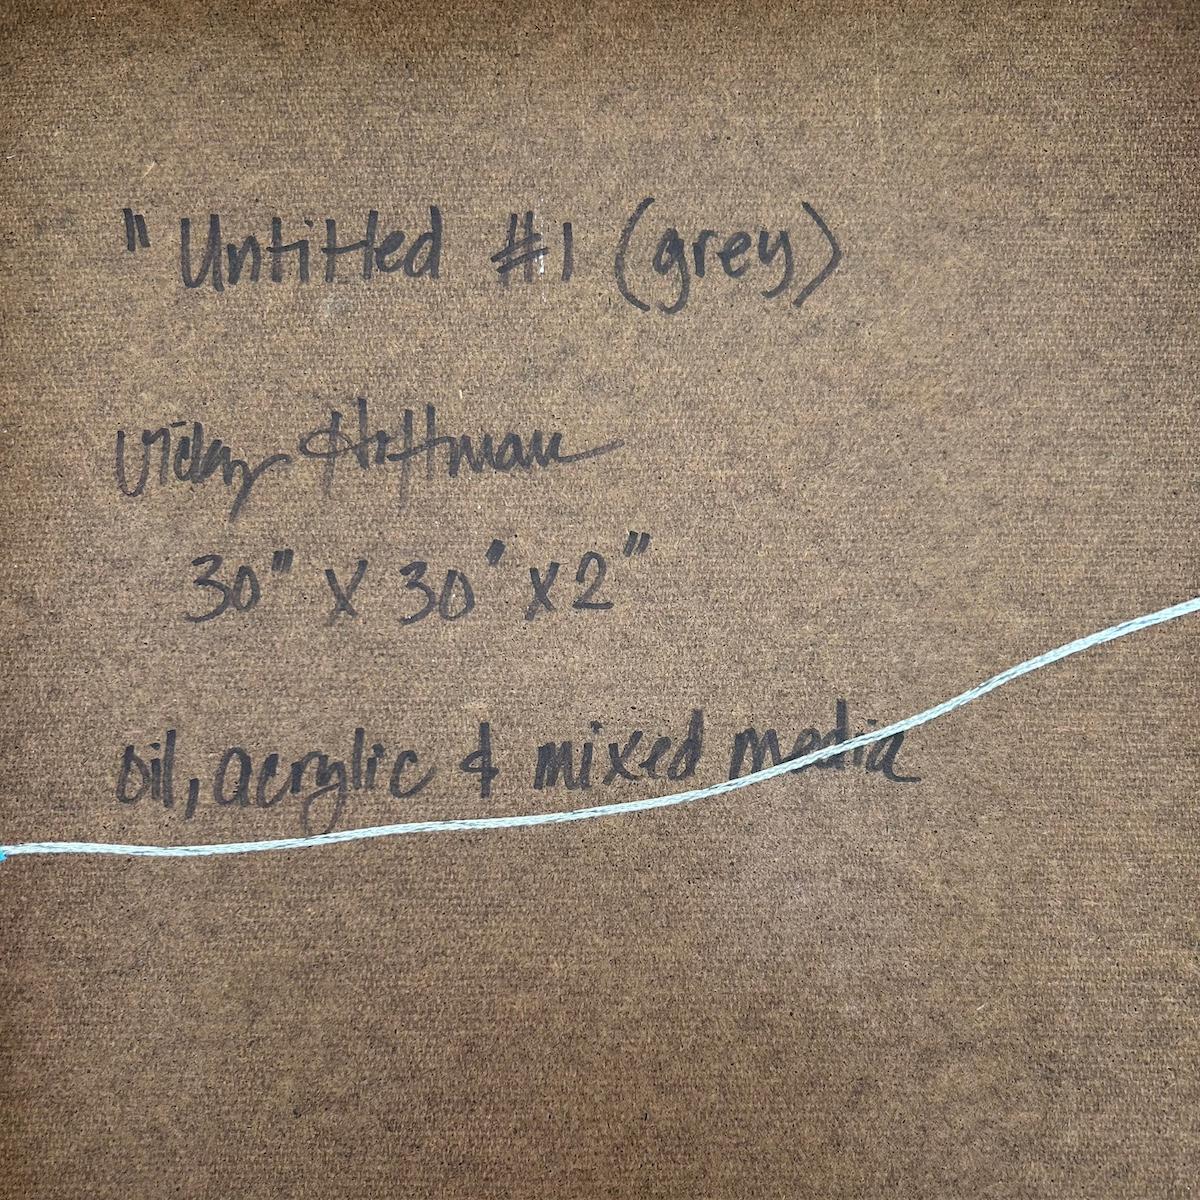 "Untitled #1 (grey)
Vicky Hoffman
30" X 30" X 2"
oil, acrylic & mixed media